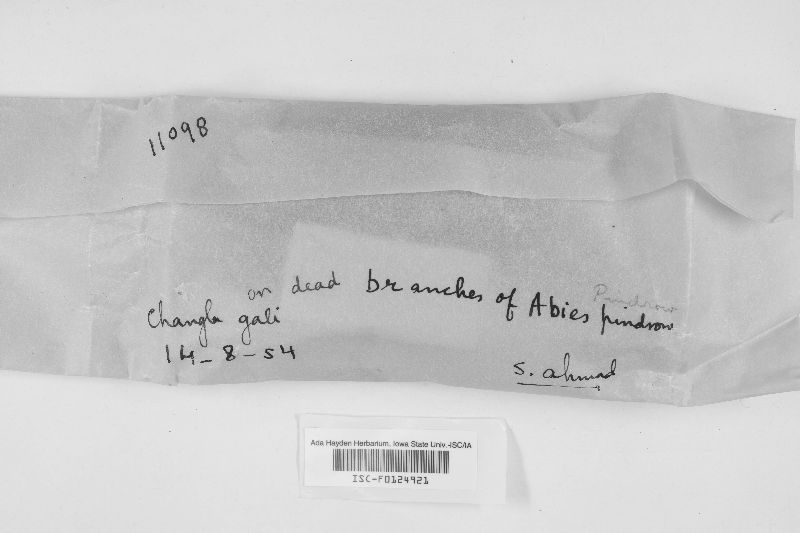 11098
on dead branches of Abies pindrow
Pindrow
Changla gali
14-8-54
S. Ahmad
Ada Hayden Herbarium, Iowa State Univ.-ISC/IA
ISC-F0124921